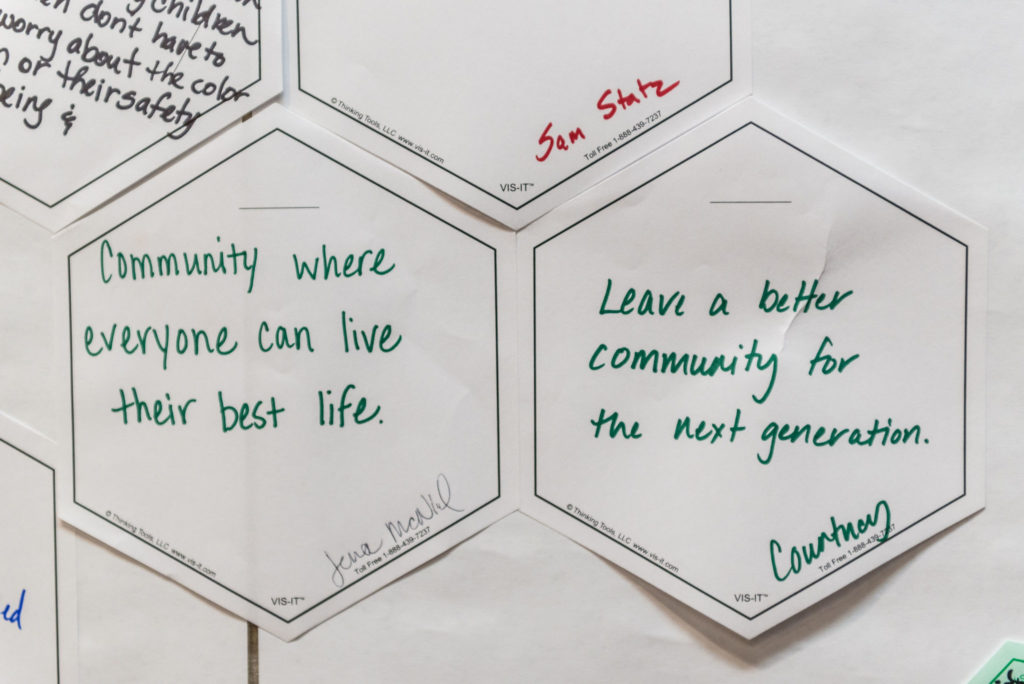 children
dont have to
worry about the color
or their safety
being &
Sam Statz
© Thinking Tools, LLC www.vis-it.com
Toll Free 1-888-439-7237
VIS-IT™
Community where
everyone can live
their best life.
Jena McNiel
© Thinking Tools, LLC www.vis-it.com
Toll Free 1-888-439-7237
VIS-IT™
Leave a better
community for
the next generation.
Courtney
© Thinking Tools, LLC www.vis-it.com
Toll Free 1-888-439-7237
VIS-IT™